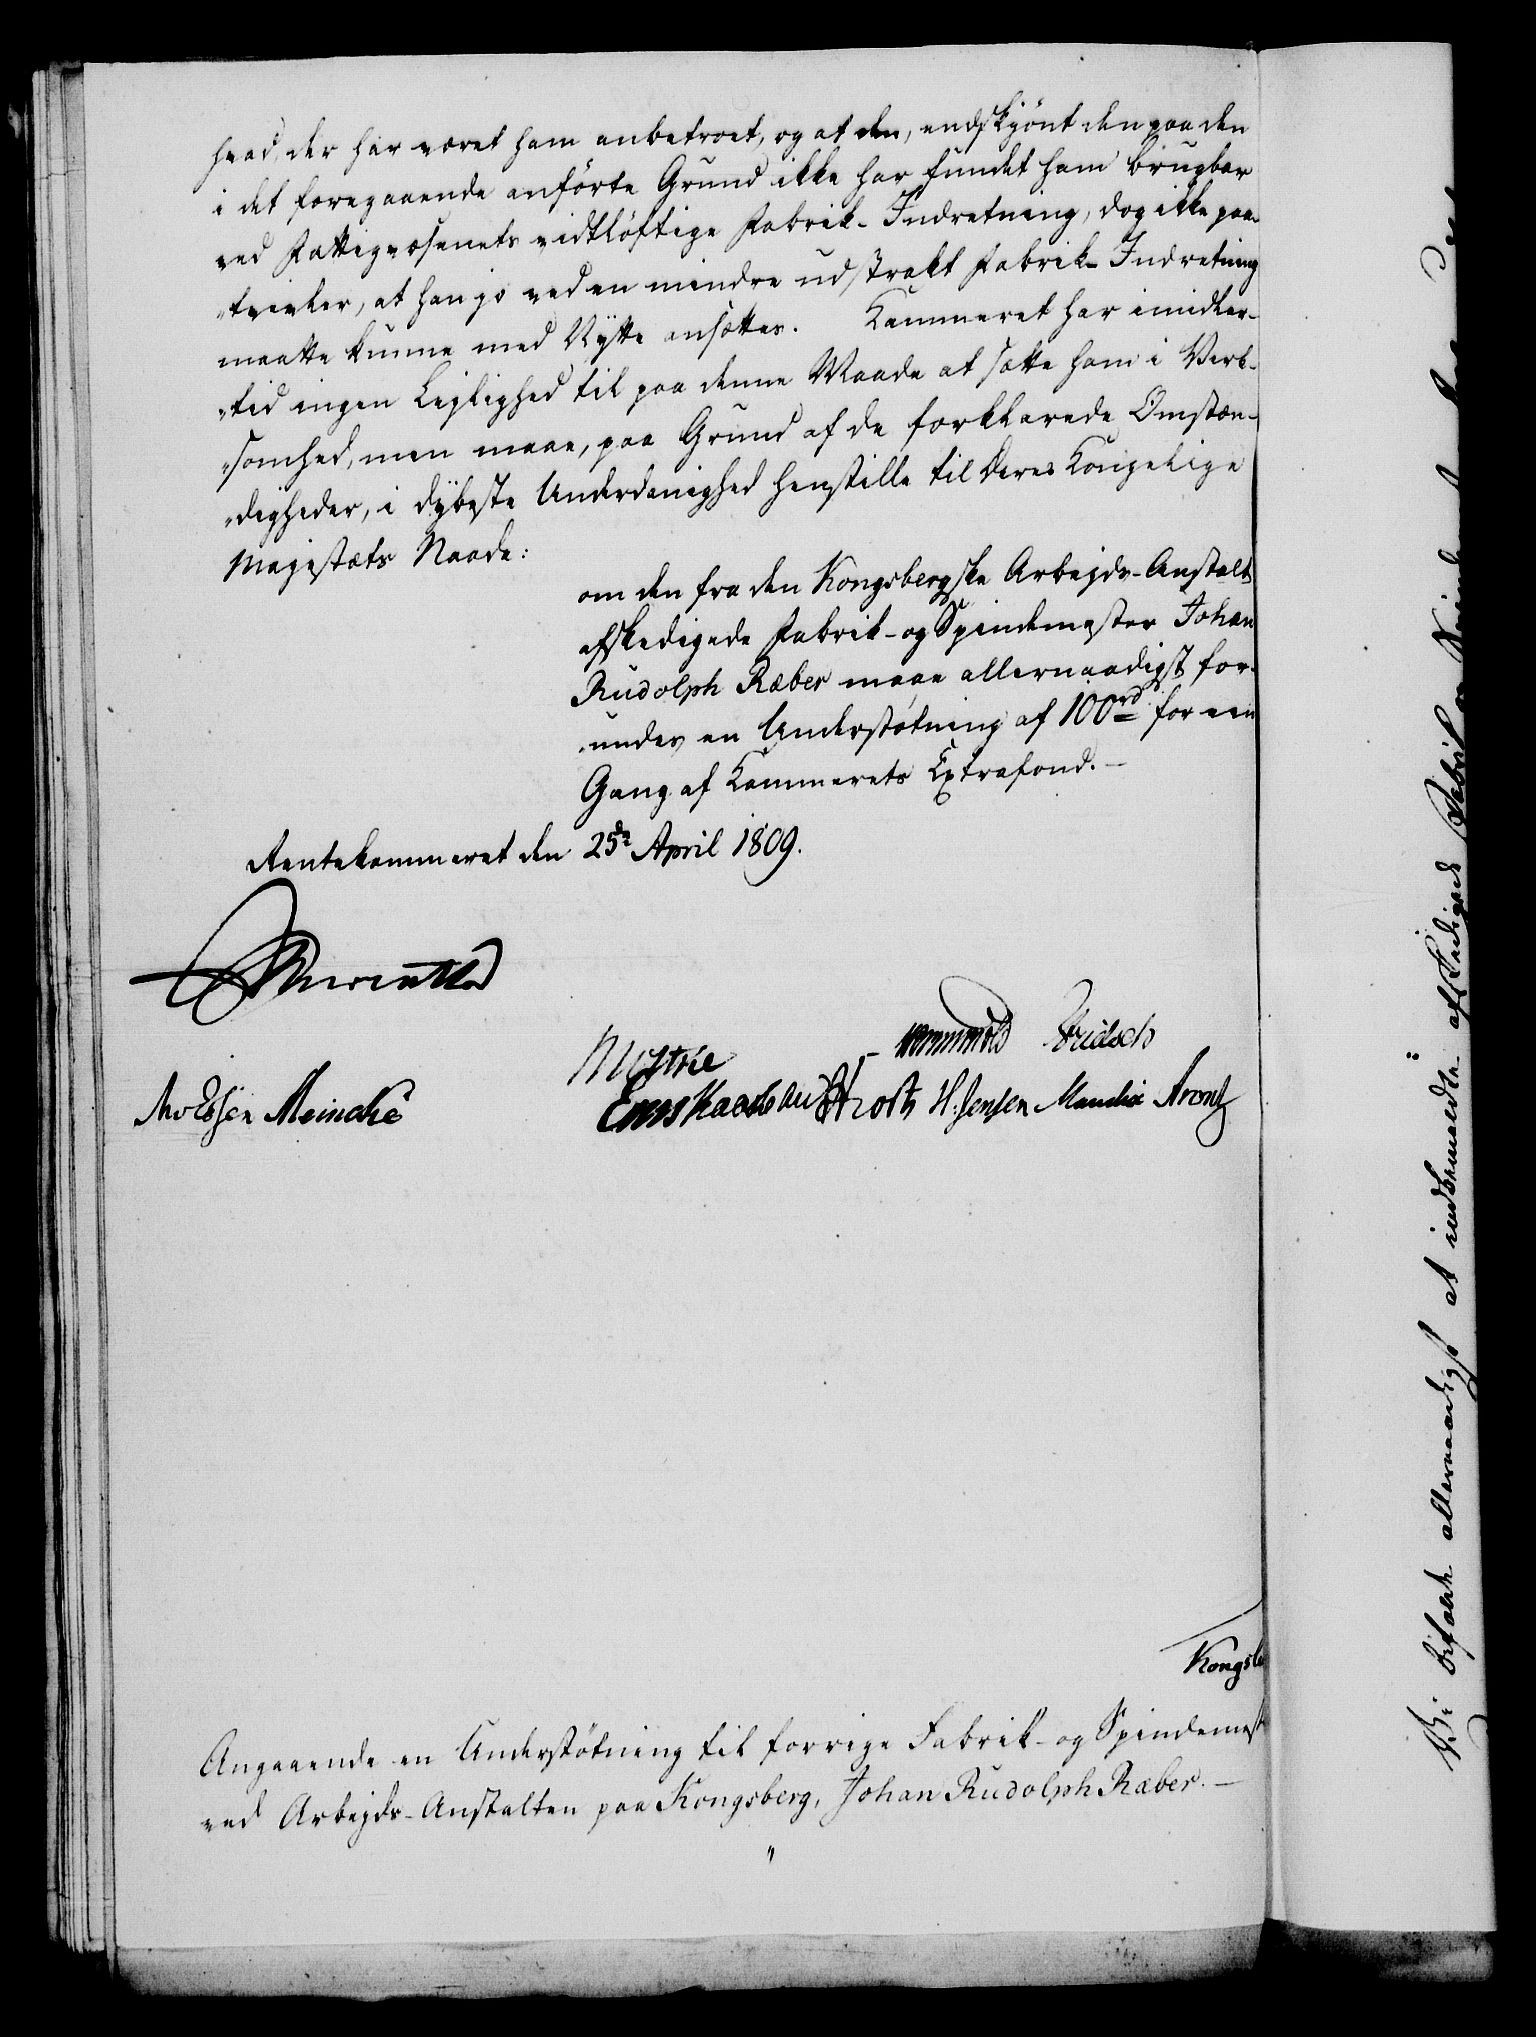 hvad, der har været ham anbetroet, og at den, endskjönt den paa den
i det foregaaende anförte Grund ikke har fundet ham brugbar
ved Fattigvæsenets vidtløftige Fabrik-Indretning, dog ikke paa-
"tvivler, at han jo ved en mindre udstrakt Fabrik-Indretning
maatte kunne med Nytte ansættes. Kammeret har imidler-
"tid ingen Leylighed til paa denne Maade at sætte ham i Virk-
"somhed, men maae, paa Grund af de forklarede Omstæn-
"digheder, i dybeste Underdanighed henstille til Deres Kongelige
Majestæts Naade:
om den fra den Kongsbergske Arbejds-Anstalt
afskedigede Fabrik- og Spindemester Johan
Rudolph Ræber maae allernaadigst for-
"undes en Understøtning af 100 rd for een
Gang af Kammerets Extrafond. —
Rentekammeret den 25de April 1809.
Wormskiold Fridsch
Meinche
H. Jensen Manthei Arentz
Kongsb
Angaaende en Understøtning til forrige Fabrik- og Spindemest
ved Arbejds-Anstalten paa Kongsberg, Johan Rudolph Ræber. —
"
Vi bifalde allernaadigst at indbemeldte afskedigede Fabrik og Spindemester